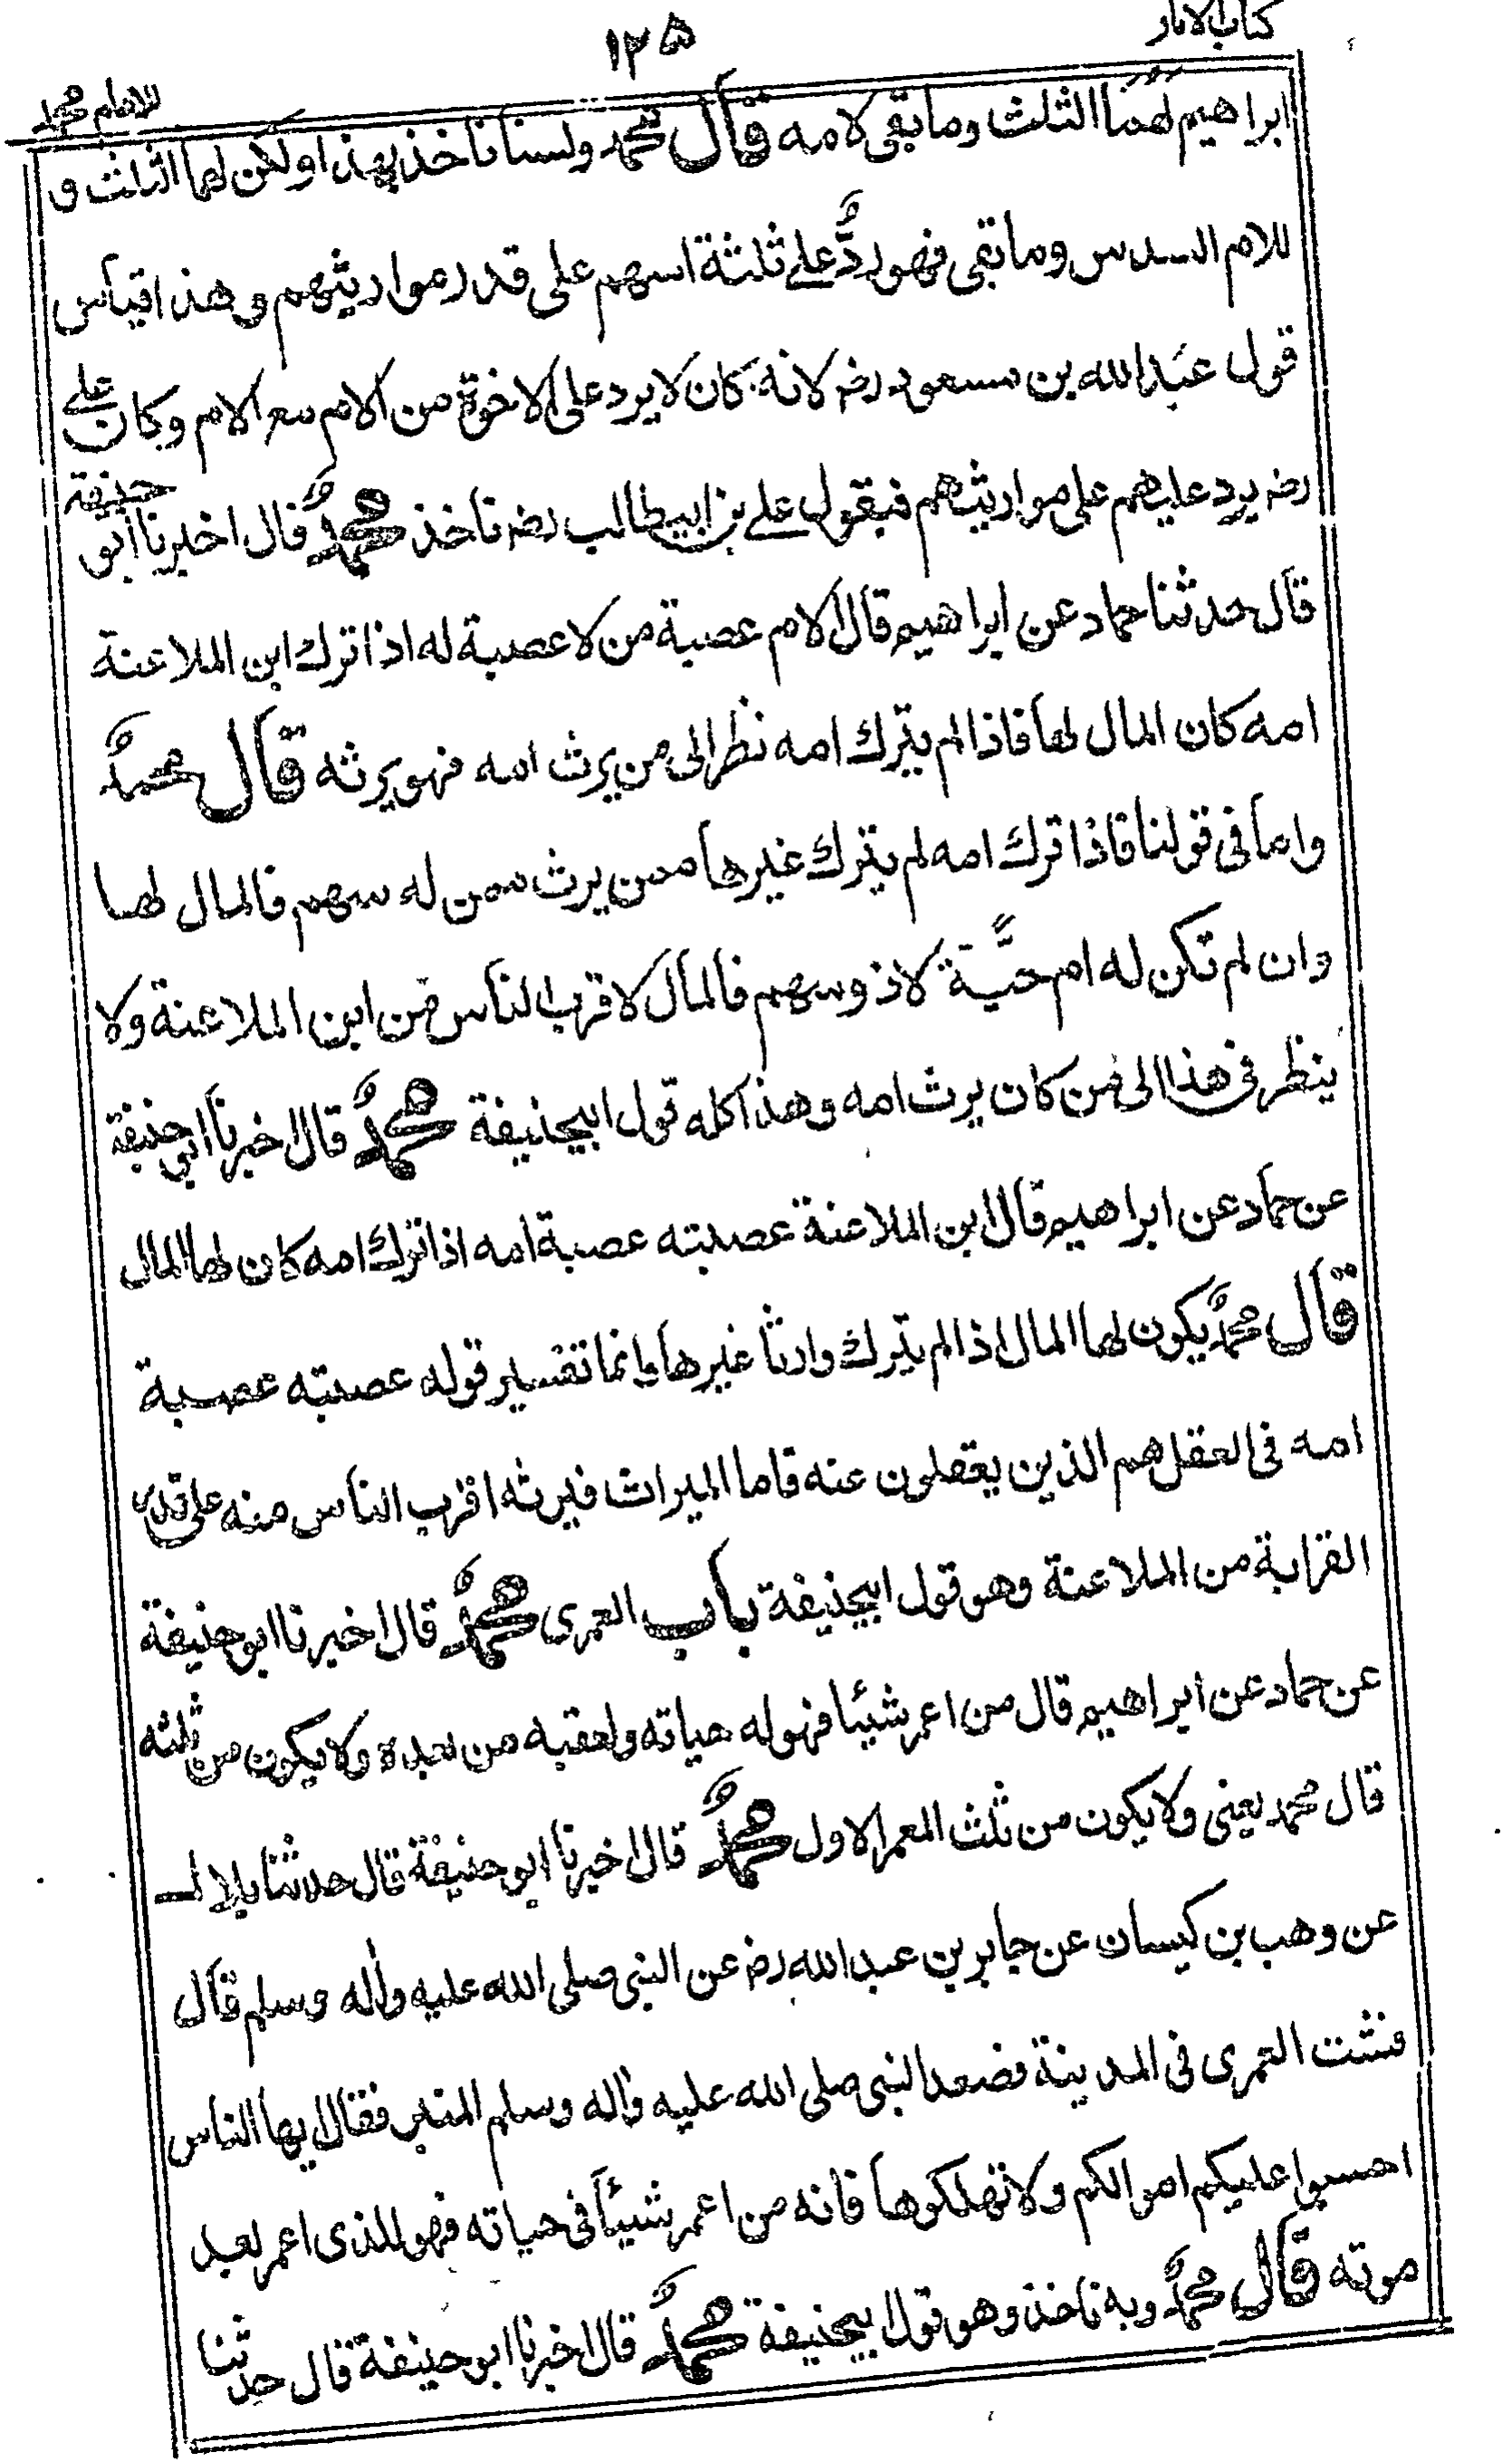 كتاب الاثار
١٢٥
للامام محمد
ابراهيم لهما الثلث وما بقى لامه قال محمد ولسنا ناخذ بهذا ولكن لهما الثلث و
للام السدس وما بقى فهو ردٌّ على ثلثة اسهم على قدر مواريثهم وهذا قياس
قول عبد الله بن مسعود رضه لانه كان لا يرد على الاخوة من الام مع الام وكان على
رضه يرد عليهم على مواريثهم فبقول على بن ابيطالب رضه ناخذ محمدٌ قال اخبرنا ابو حنيفة
قال حدثنا حماد عن ابراهيم قال الام عصبة من لا عصبة له اذا ترك ابن الملاعنة
امه كان المال لها فاذا لم يترك امه نظر الى من يرث امه فهو يرثه قال محمدٌ
واما فى قولنا فاذا ترك امه لم يترك غيرها ممن يرث ممن له سهم فالمال لها
وان لم تكن له ام حيَّة لاذو سهم فالمال لاقرب الناس من ابن الملاعنة ولا
ينظر فى هذا الى من كان يرث امه وهذا كله قول ابيحنيفة محمدٌ قال اخبرنا ابو حنيفة
عن حماد عن ابراهيم قال ابن الملاعنة عصبته عصبة امه اذا ترك امه كان لها المال
قال محمدٌ يكون لها المال اذا لم يترك وارثا غيرها وانما تفسير قوله عصبته عصبة
امه فى العقل هم الذين يعقلون عنه فاما الميراث فيرثه اقرب الناس منه على قدر
القرابة من الملاعنة وهو قول ابيحنيفة باب العمرى محمدٌ قال اخبرنا ابو حنيفة
عن حماد عن ابراهيم قال من اعمر شيئا فهو له حياته ولعقبه من بعده ولا يكون من ثلثه
قال محمد يعنى ولا يكون من ثلث المعمر الاول محمدٌ قال اخبرنا ابو حنيفة قال حدثنا بلال
عن وهب بن كيسان عن جابر بن عبد الله رضه عن النبى صلى الله عليه واٰله وسلم قال
فنشت العمرى فى المدينة فصعد النبى صلى الله عليه واٰله وسلم المنبر فقال ايها الناس
احبسوا عليكم اموالكم ولا تهلكوها فانه من اعمر شيئاً فى حياته فهو للذى اعمر بعد
موته قال محمدٌ وبه ناخذ وهو قول ابيحنيفة محمدٌ قال اخبرنا ابو حنيفة قال حدثنا